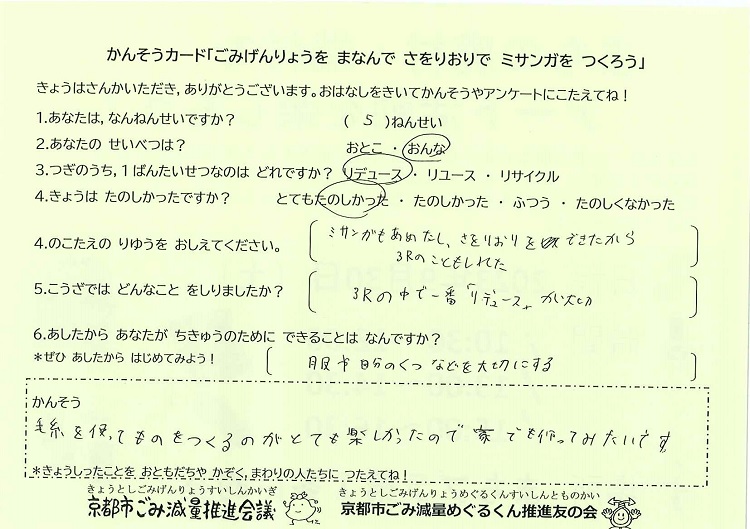 かんそうカード「ごみげんりょうを まなんで さをりおりで ミサンガを つくろう」
きょうはさんかいただき，ありがとうございます。おはなしをきいてかんそうやアンケートにこたえてね！
1.あなたは，なんねんせいですか？ ( 5 )ねんせい
2.あなたの せいべつは？ おとこ ・ おんな
3.つぎのうち，1ばんたいせつなのは どれですか？ リデュース ・ リユース ・ リサイクル
4.きょうは たのしかったですか？ とてもたのしかった ・ たのしかった ・ ふつう ・ たのしくなかった
4.のこたえの りゆうを おしえてください。 ミサンガもあめたし、さをりおりを できたから
3Rのこともしれた
5.こうざでは どんなこと をしりましたか？ 3Rの中で一番「リデュース」が大切
6.あしたから あなたが ちきゅうのために できることは なんですか？
*ぜひ あしたから はじめてみよう！ 服や自分のくつなどを大切にする
かんそう
毛糸を使ってものをつくるのがとても楽しかったので家でも作ってみたいです
*きょうしったことを おともだちや かぞく，まわりの人たちに つたえてね！
きょうとしごみげんりょうすいしんかいぎ きょうとしごみげんりょうめぐるくんすいしんとものかい
京都市ごみ減量推進会議 京都市ごみ減量めぐるくん推進友の会